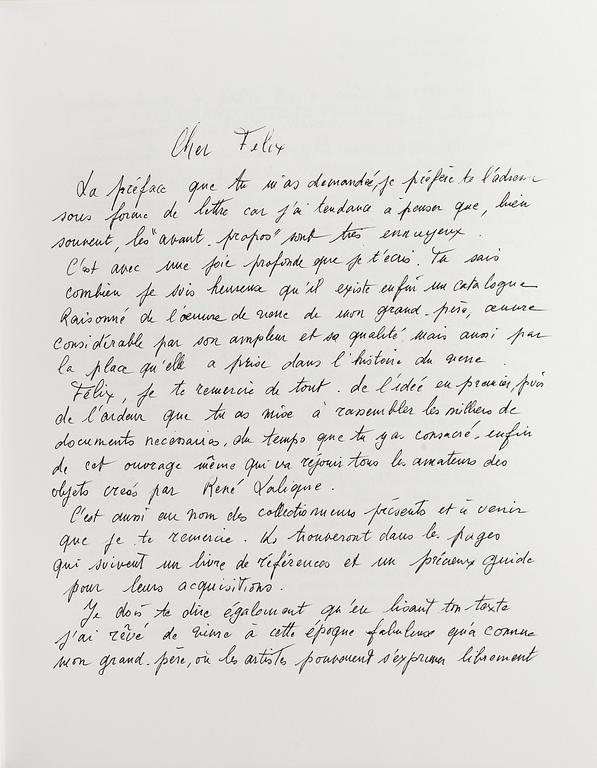 Cher Felix
La préface que tu m'as demandée, je préfère te l'adresser
sous forme de lettre car j'ai tendance à penser que, bien
souvent, les "avant-propos" sont très ennuyeux.
C'est avec une joie profonde que je t'écris. Tu sais
combien je suis heureuse qu'il existe enfin un catalogue
Raisonné de l'œuvre de verre de mon grand-père, œuvre
considérable par son ampleur et sa qualité mais aussi par
la place qu'elle a prise dans l'histoire du verre.
Félix, je te remercie de tout. de l'idée en premier, puis
de l'ardeur que tu as mise à rassembler les milliers de
documents nécessaires, du temps que tu y as consacré, enfin
de cet ouvrage même qui va réjouir tous les amateurs des
objets créés par René Lalique.
C'est aussi au nom des collectionneurs présents et à venir
que je te remercie. Ils trouveront dans les pages
qui suivent un livre de références et un précieux guide
pour leurs acquisitions.
Je dois te dire également qu'en lisant ton texte
j'ai rêvé de vivre à cette époque fabuleuse qu'a connue
mon grand-père, où les artistes pouvaient s'exprimer librement